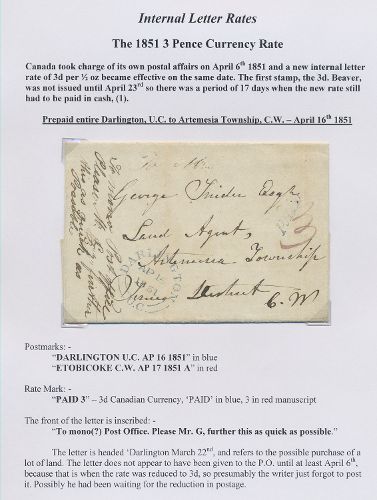 Internal Letter Rates
The 1851 3 Pence Currency Rate
Canada took charge of its own postal affairs on April 6th 1851 and a new internal letter
rate of 3d per ½ oz became effective on the same date. The first stamp, the 3d. Beaver,
was not issued until April 23rd so there was a period of 17 days when the new rate still
had to be paid in cash, (1).
Prepaid entire Darlington, U.C. to Artemesia Township, C.W. – April 16th 1851
To mono Post Office
Please Mr G, further
this as quick as
Possible
George Snider Esqr
Land Agent,
Artemesia Township
District
C. W
DARLINGTON
AP 16
1851
U.C.
PAID
3
Postmarks: -
"DARLINGTON U.C. AP 16 1851" in blue
"ETOBICOKE C.W. AP 17 1851 A" in red
Rate Mark: -
"PAID 3" – 3d Canadian Currency, 'PAID' in blue, 3 in red manuscript
The front of the letter is inscribed: -
"To mono(?) Post Office. Please Mr. G, further this as quick as possible."
The letter is headed 'Darlington March 22nd, and refers to the possible purchase of a
lot of land. The letter does not appear to have been given to the P.O. until at least April 6th,
because that is when the rate was reduced to 3d, so presumably the writer just forgot to post
it. Possibly he had been waiting for the reduction in postage.